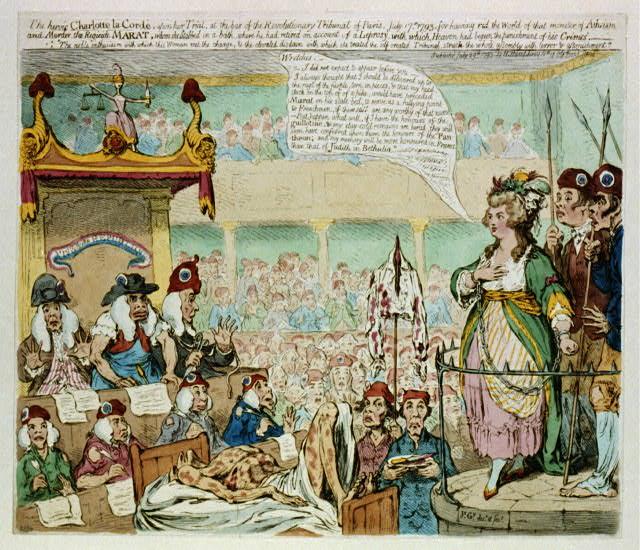 The heroic Charlotte la Cordé, upon her Trial, at the bar of the Revolutionary Tribunal of Paris, July 17th 1793, for having rid the World of that monster of Atheism
and Murder the Regicide MARAT, whom she stabbed in a bath, where he had retired on account of a Leprosy, with which, Heaven had begun the punishment of his Crimes.
"The noble enthusiasm with which this Woman met the charge, & the elevated disdain with which she treated the self created Tribunal, struck the whole assembly with terror & astonishment."
Wretches,
I did not expect to appear before you
I always thought that I should be delivered up to
the rage of the people, torn in pieces, & that my head
stuck on the top of a pike, would have preceded
Marat on his state bed, to serve as a rallying point
to Frenchmen, if there still are any worthy of that name
But, happen what will, if I have the honours of the
guillotine, & my clay cold remains are buried, they will
soon have conferred upon them the honours of the Pan
theon; and my memory will be more honoured in France
than that of Judith in Bethulia